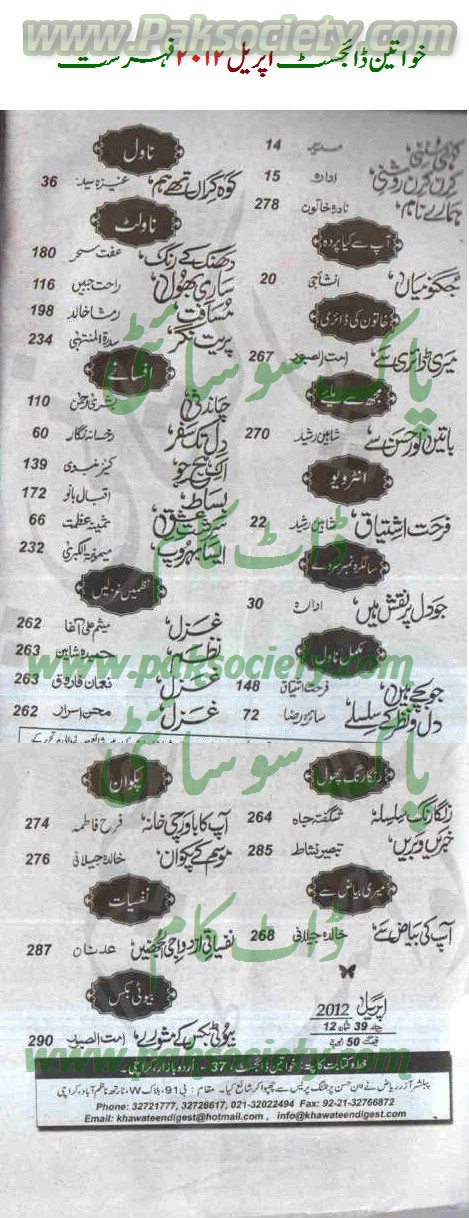 www.Paksociety.com
خواتین ڈائجسٹ اپریل ۲۰۱۲ فہرست
کرن کرن روشنی، ادارہ 15
ہمارے نام، نادرہ خاتون 278
آپ سے کیا پردہ
انشا جی 20
خاتون کی ڈائری
میری ڈائری سے، امت الصبور 267
مجھ سے ملیے
باتیں نور حسن سے شاہین رشید 270
انٹرویو
فرحت اشتیاق، شاہین رشید 22
جو دل پر نقش ہیں، ادارہ 30
مکمل ناول
فرحت اشتیاق 148
دل و نظر کے سلسلے سائرہ رضا 72
ناول
کوہ گراں تھے ہم، عنیزہ سید 36
ناولٹ
دھنک کے رنگ، عفت سحر 180
ساری بھول، راحت جبیں 116
مسافت، رمشا خالد 198
پریت نگر، سدرۃ المنتہی 234
افسانے
چاندنی 110
دل تک سفر، رخسانہ نگار 60
139
بساط، اقبال بانو 172
66
232
نظمیں غزلیں
غزل، میثم علی آغا 262
نظم، حمیدہ شاہین 263
غزل، نعمان فاروق 263
غزل، محسن اسرار 262
www.paksociety.com
پاک سوسائٹی
ڈاٹ کام
رنگارنگ پھول
رنگارنگ سلسلہ شگفتہ جاہ 264
خبریں وبریں، تبصیر نشاط 285
میری بیاض سے
آپ کی بیاض سے، خالدہ جیلانی 268
اپریل 2012
جلد 39 شمارہ 12
قیمت 50 روپے
پکوان
آپ کا باورچی خانہ، فرح فاطمہ 274
موسم کے پکوان، خالدہ جیلانی 276
نفسیات
نفسیاتی ازدواجی الجھنیں عدنان 287
بیوٹی بکس
بیوٹی بکس کے مشورے، امت الصبور 290
پاک سوسائٹی
ڈاٹ کام
www.paksociety.com
خط و کتابت کا پتہ: خواتین ڈائجسٹ، 37 - اردو بازار، کراچی۔
پبلشر آذر ریاض نے ابن حسن پرنٹنگ پریس سے چھپوا کر شائع کیا۔ مقام: بی 91، بلاک W، نارتھ ناظم آباد، کراچی
Phone: 32721777, 32726617, 021-32022494 Fax: 92-21-32766872
Email: khawateendigest@hotmail.com , info@khawateendigest.com